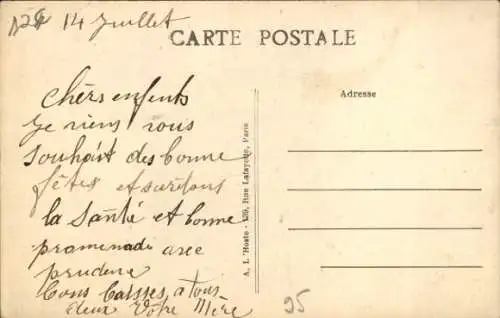 14 Juillet
CARTE POSTALE
Chèrs enfents
Je viens vous
Souhait des bonne
fêtes et surtous
la Santé et bonne
promenade avec
prudence
bons baisses a tous
deux Votre Mère
A. L'Hoste - 139, Rue Lafayette, Paris
Adresse
95